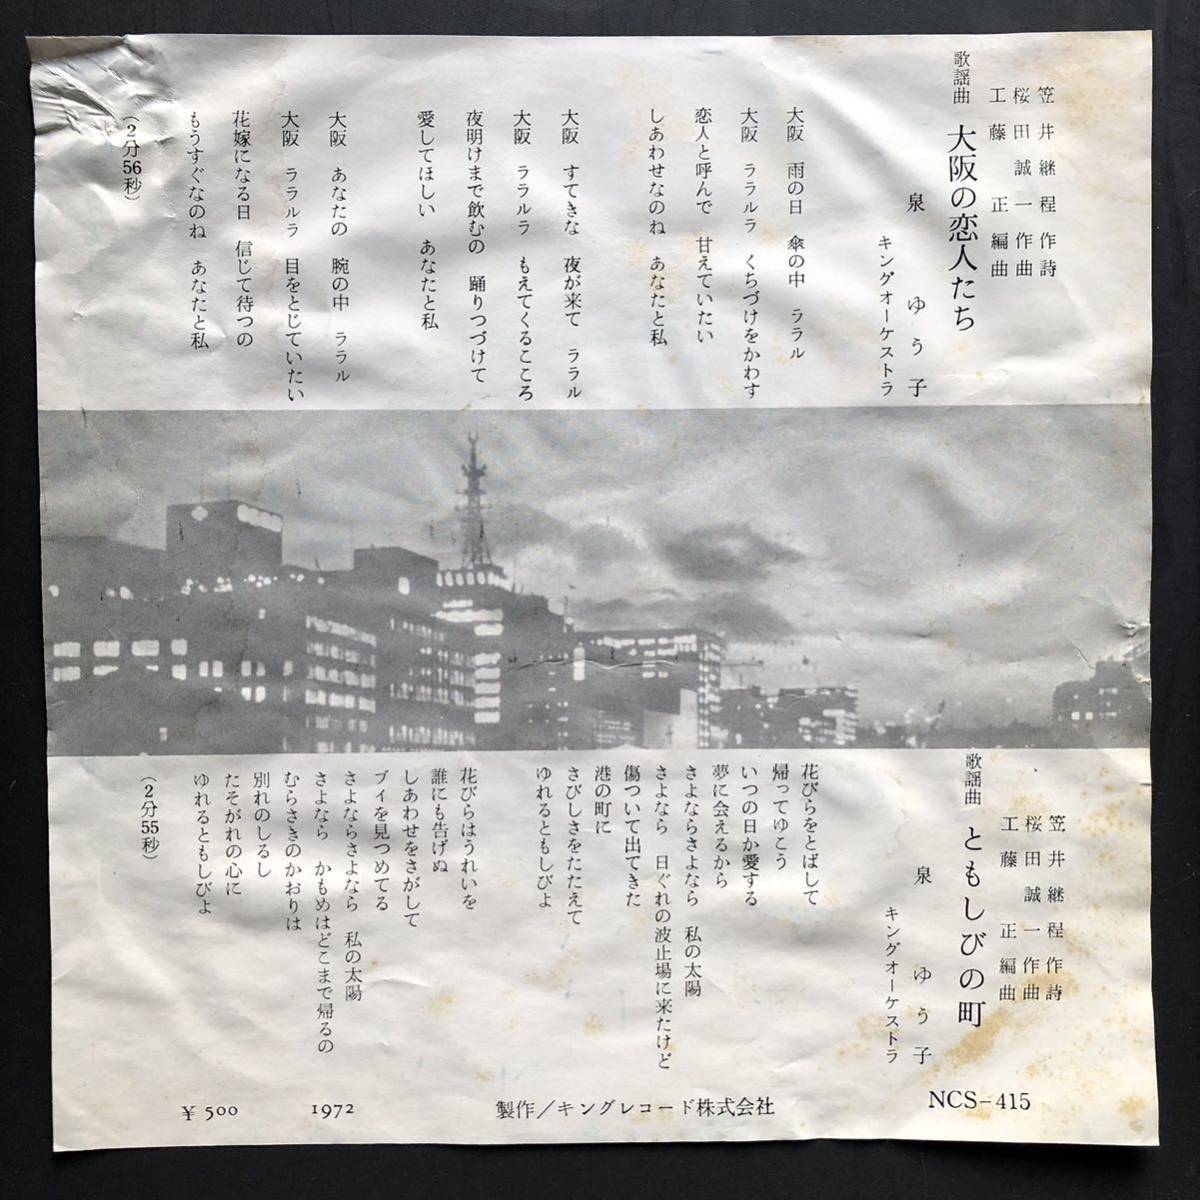 笠井継程 作詩
桜田誠一 作曲
工藤正 編曲
歌謡曲 大阪の恋人たち
泉 ゆう子
キングオーケストラ
大阪 雨の日 傘の中 ララル
大阪 ララルラ くちづけをかわす
恋人と呼んで 甘えていたい
しあわせなのね あなたと私
大阪 すてきな 夜が来て ララル
大阪 ララルラ もえてくるこころ
夜明けまで飲むの 踊りつづけて
愛してほしい あなたと私
大阪 あなたの 腕の中 ララル
大阪 ララルラ 目をとじていたい
花嫁になる日 信じて待つの
もうすぐなのね あなたと私
(2分56秒)
笠井継程 作詩
桜田誠一 作曲
工藤正 編曲
歌謡曲 ともしびの町
泉 ゆう子
キングオーケストラ
花びらをとばして
帰ってゆこう
いつの日か愛する
夢に会えるから
さよならさよなら 私の太陽
さよなら 日ぐれの波止場に来たけど
傷ついて出てきた
港の町に
さびしさをたたえて
ゆれるともしびよ
花びらはうれいを
誰にも告げぬ
しあわせをさがして
ブイを見つめてる
さよならさよなら 私の太陽
さよなら かもめはどこまで帰るの
むらさきのかおりは
別れのしるし
たそがれの心に
ゆれるともしびよ
(2分55秒)
NCS-415
製作/キングレコード株式会社
1972
¥500